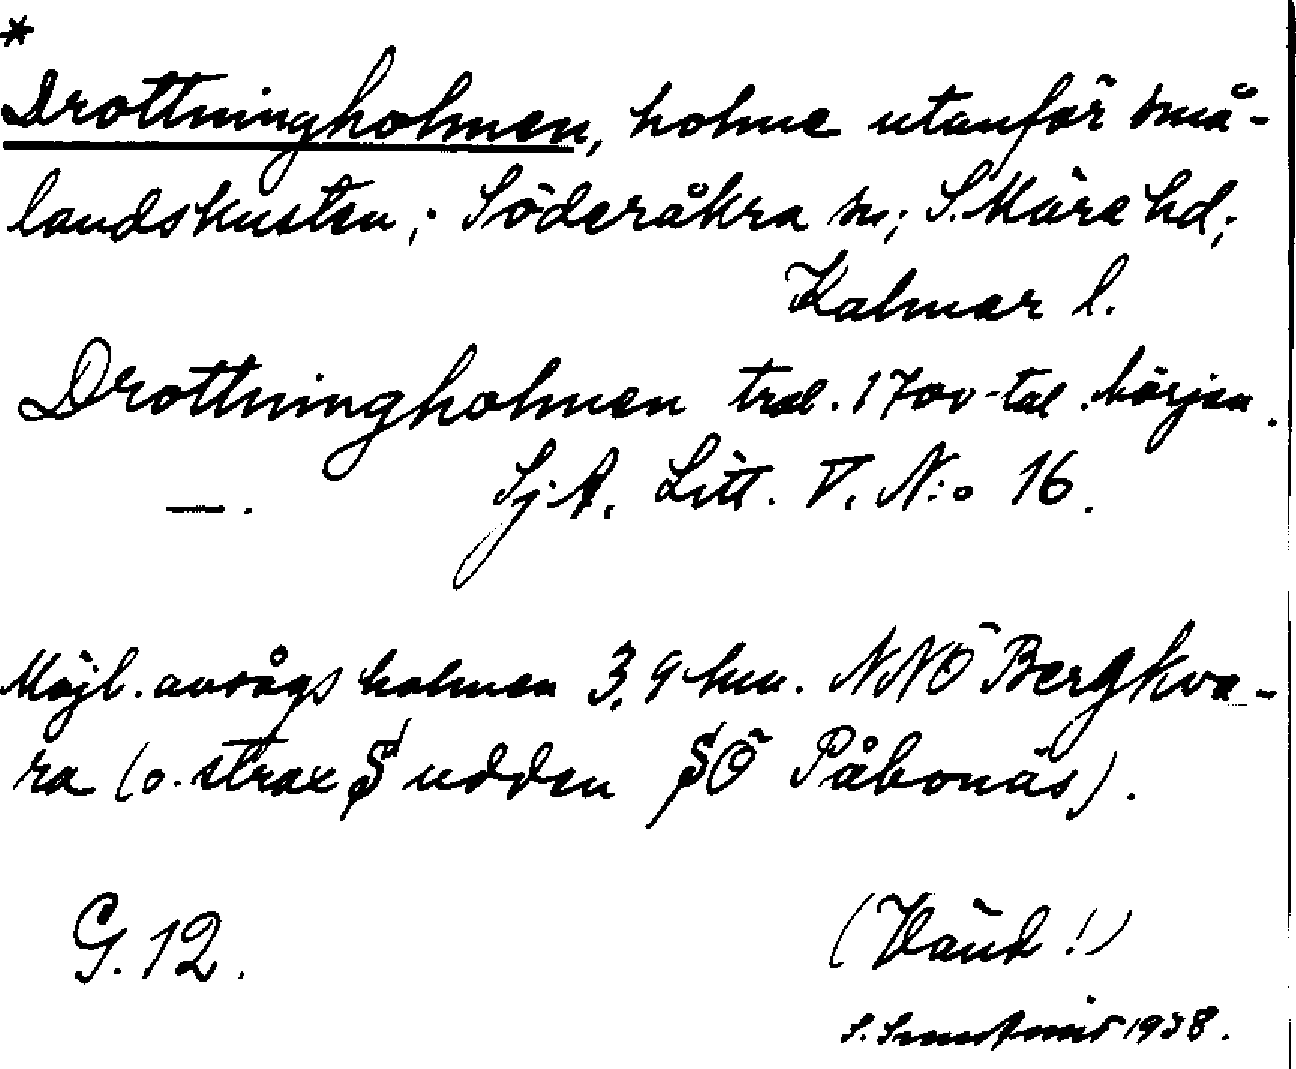 *
Drottningholmen, holme utanför små-
landskusten; Söderåkra sn; S. Möre hd;
Kalmar l.
Drottningholmen trol. 1700-tal. början.
— . Sj. A. Litt. V. N:o 16.
Möjl. avsågs holmen 3,9 km. NNÖ Bergkva-
ra (o. strax S udden SÖ Påbonäs).
G. 12.
(Vänd!)
S. 1938.